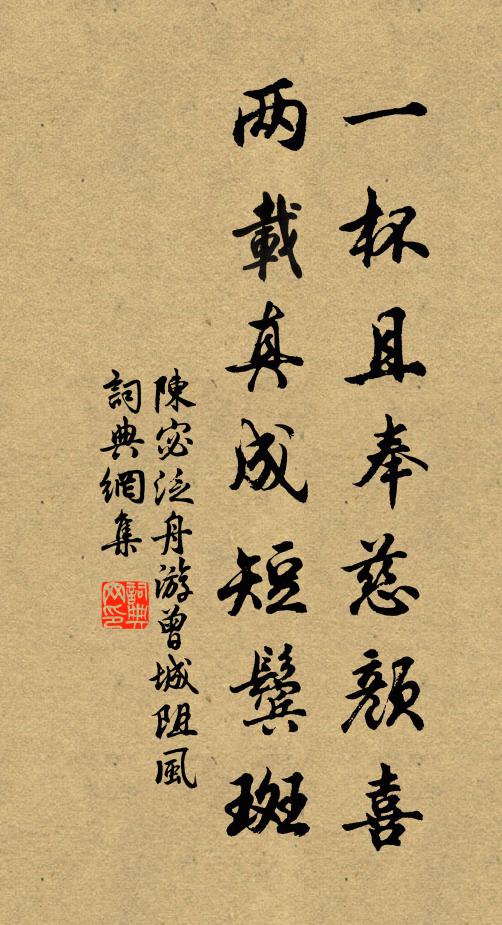 一杯且奉慈顏喜
两載真成短鬢斑
陳宓泛舟游曾城阻風
詞典網集
詞典网印